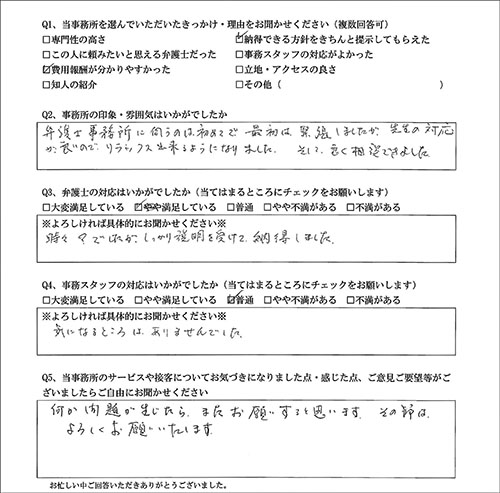 Q1、当事務所を選んでいただいたきっかけ・理由をお聞かせください（複数回答可）
□専門性の高さ ☑納得できる方針をきちんと提示してもらえた
□この人に頼みたいと思える弁護士だった □事務スタッフの対応がよかった
☑費用報酬が分かりやすかった □立地・アクセスの良さ
□知人の紹介 □その他（ ）
Q2、事務所の印象・雰囲気はいかがでしたか
弁護士事務所に伺うのは初めてで 最初は 緊張しましたが 先生の対応
が良いので、リラックス出来るようになりました。 そして、良く相談できました
Q3、弁護士の対応はいかがでしたか（当てはまるところにチェックをお願いします）
□大変満足している ☑やや満足している □普通 □やや不満がある □不満がある
※よろしければ具体的にお聞かせください※
しっかり説明を受けて、納得しました。
Q4、事務スタッフの対応はいかがでしたか（当てはまるところにチェックをお願いします）
□大変満足している □やや満足している ☑普通 □やや不満がある □不満がある
※よろしければ具体的にお聞かせください※
気になるところは ありませんでした。
Q5、当事務所のサービスや接客についてお気づきになりました点・感じた点、ご意見ご要望等がご
ざいましたらご自由にお聞かせください
何か問題が生じたら、またお願いすると思います。 その節は、
よろしくお願いいたします。
お忙しい中ご回答いただきありがとうございました。